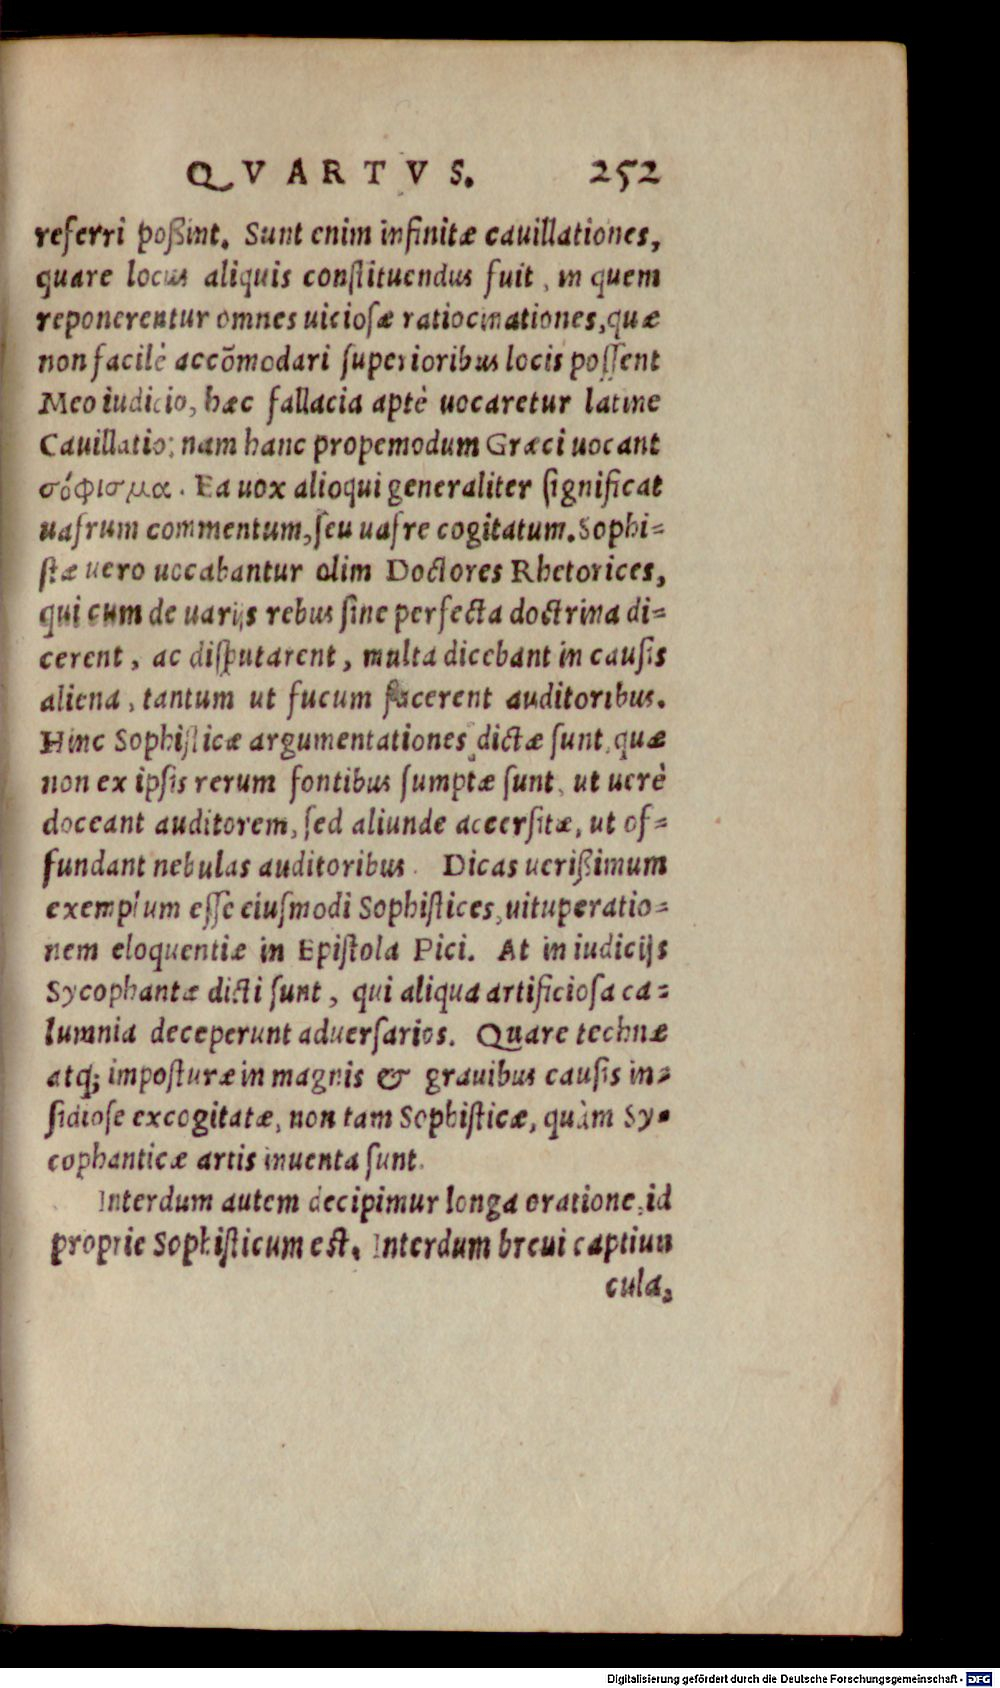 QVARTVS. 252
referri poßint. Sunt enim infinitæ cauillationes,
quare locus aliquis constituendus fuit, in quem
reponerentur omnes uiciosæ ratiocinationes, quæ
non facilè accõmodari superioribus locis possent
Meo iudicio, hæc fallacia aptè uocaretur latine
Cauillatio: nam hanc propemodum Græci uocant
σόφισμα. Ea uox alioqui generaliter significat
uafrum commentum, seu uafre cogitatum. Sophi-
stæ uero uocabantur olim Doctores Rhetorices,
qui cum de uarijs rebus sine perfecta doctrina di-
cerent, ac disputarent, multa dicebant in causis
aliena, tantum ut fucum facerent auditoribus.
Hinc Sophisticæ argumentationes dictæ sunt, quæ
non ex ipsis rerum fontibus sumptæ sunt, ut uerè
doceant auditorem, sed aliunde accersitæ, ut of-
fundant nebulas auditoribus. Dicas uerißimum
exemplum esse eiusmodi Sophistices, uituperatio-
nem eloquentiæ in Epistola Pici. At in iudicijs
Sycophantæ dicti sunt, qui aliqua artificiosa ca-
lumnia deceperunt aduersarios. Quare technæ
atq; imposturæ in magnis & grauibus causis in-
sidiose excogitatæ, non tam Sophisticæ, quàm Sy-
cophanticæ artis inuenta sunt.
Interdum autem decipimur longa oratione, id
proprie Sophisticum est. Interdum breui captiun
cula,
Digitalisierung gefördert durch die Deutsche Forschungsgemeinschaft - DFG